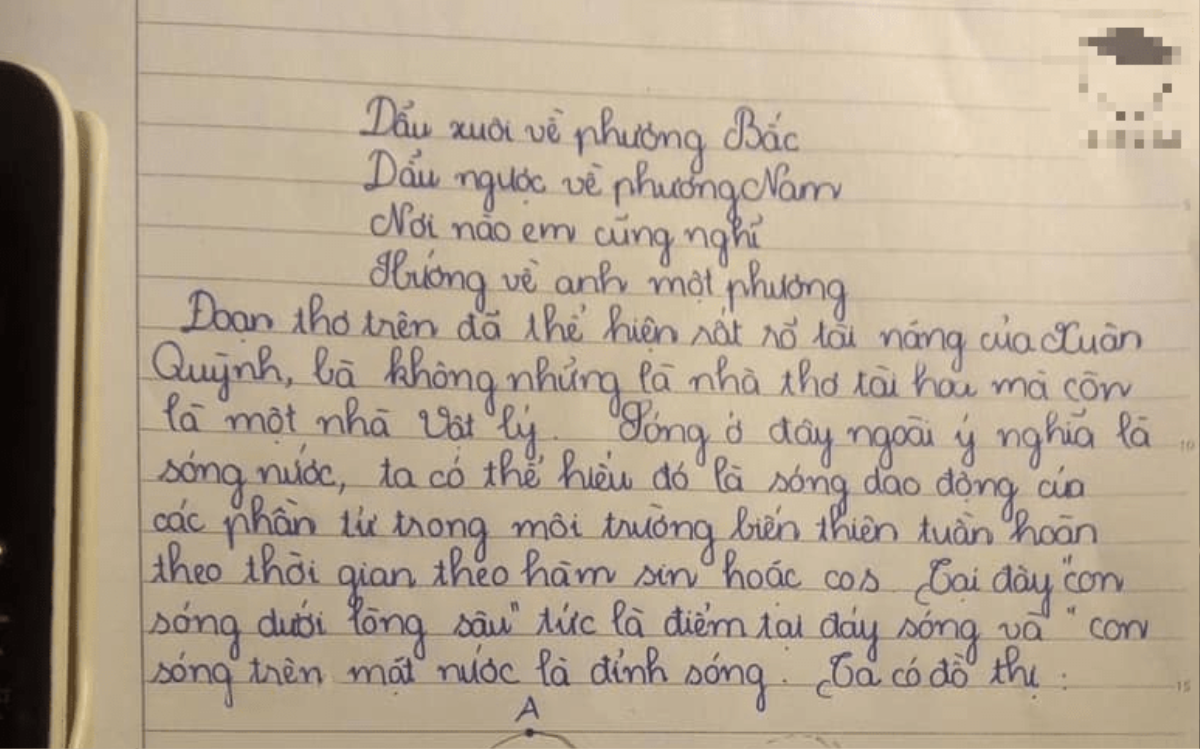 Dẩu xuôi về phương Bắc
Dẩu ngược về phương Nam
Nơi nào em cũng nghĩ
Hướng về anh một phương
Đoạn thơ trên đã thể hiện rất rõ tài năng của Xuân
Quỳnh, bà không những là nhà thơ tài hoa mà còn
là một nhà Vật lý. Sóng ở đây ngoài ý nghĩa là
sóng nước, ta có thể hiểu đó là sóng dao động của
các phần tử trong môi trường biến thiên tuần hoàn
theo thời gian theo hàm sin hoặc cos Tại đây "con
sóng dưới lòng sâu" tức là điểm tại đáy sóng và "con
sóng trên mặt nước là đỉnh sóng. Ta có đồ thị:
A
5
10
15